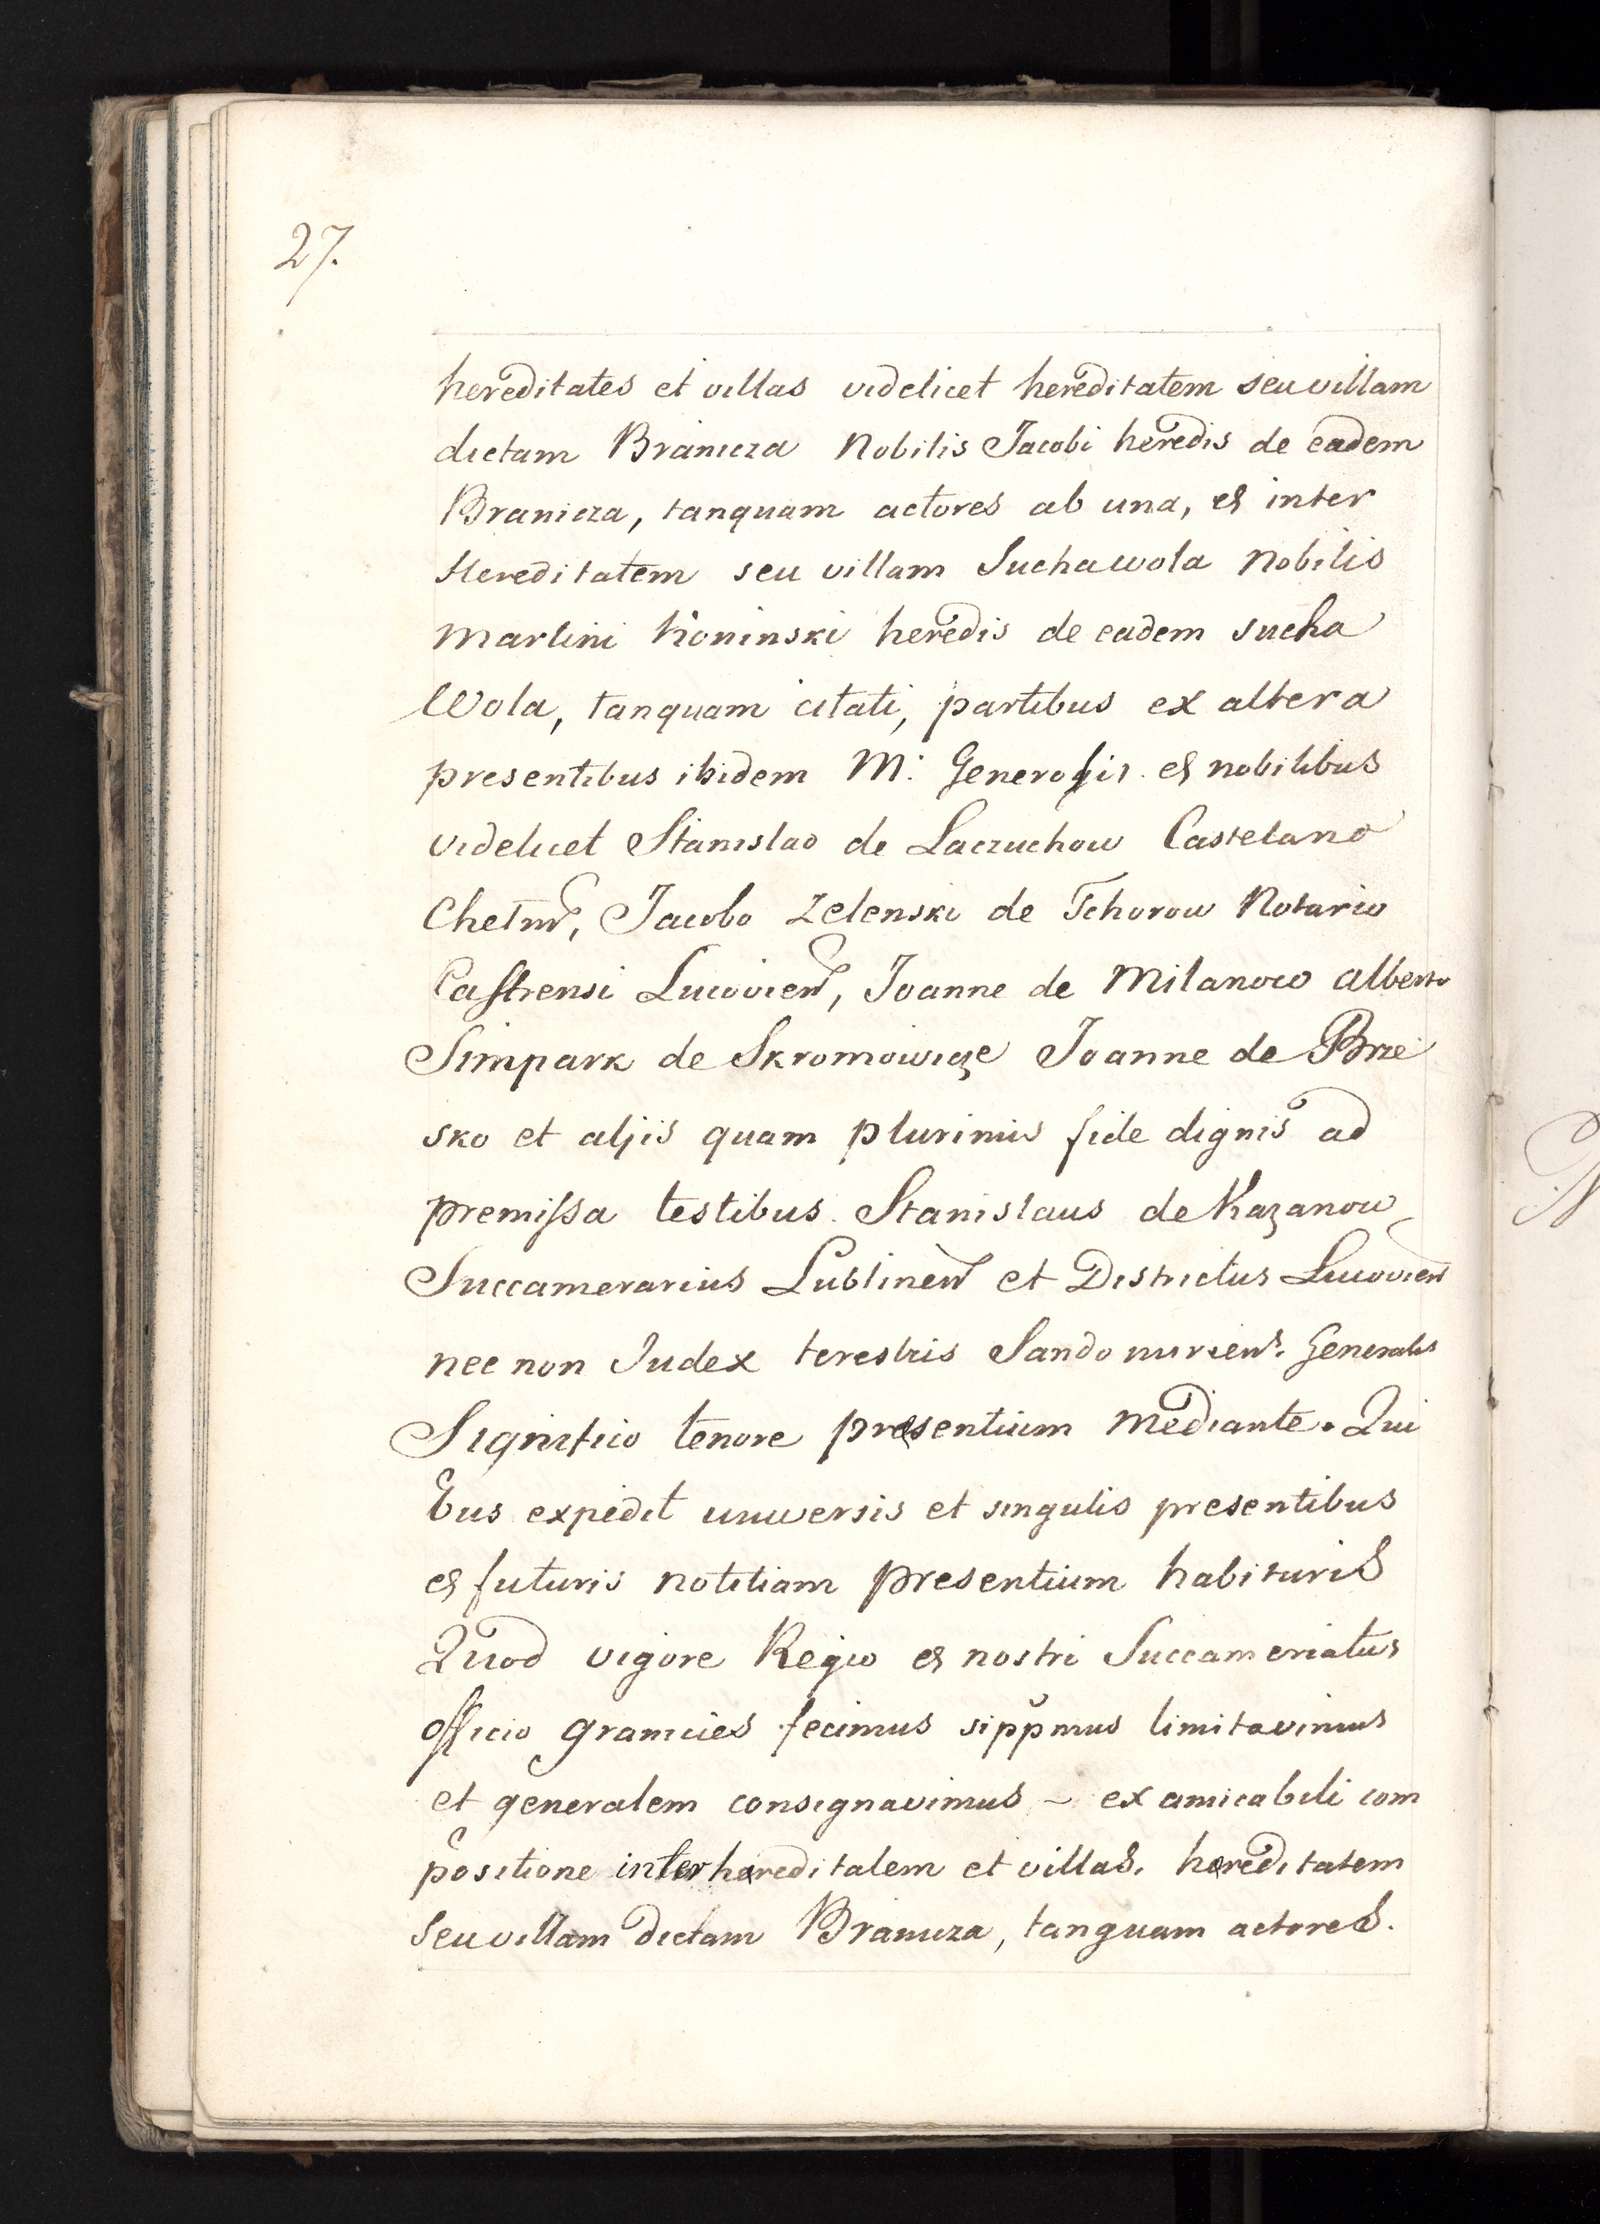 27.
hereditates et villas videlicet hereditatem seu villam
dictam Branicza Nobilis Jacobi heredis de eadem
Branicza, tanquam actores ab una, et inter
Hereditatem seu villam Suchawola Nobilis
Martini Koninski heredis de eadem sucha
Wola, tanquam citati, partibus ex altera
presentibus ibidem M: Generosis et nobilibus
videlicet Stanislao de Laczuchow Castelano
Chelm, Jacobo Zelenski de Tchorow Notario
Castrensi Lucovien, Joanne de Milanow Alberto
Simpark de Skromowicze Joanne de Brze
sko et aljis quam plurimis fide dignis ad
premissa testibus. Stanislaus de Kazanow
Succamerarius Lublinen et Districtus Lucovien
nec non Judex terestris Sandomirien: Generalis
Significo tenore presentium mediante. Qui
bus expedit universis et singulis presentibus
et futuris notitiam presentium habituris
Quod vigore Regio et nostri Succameriatus
officio granicies fecimus sippmus limitavimus
et generalem consignavimus ~ ex amicabili com
positione inter hereditalem et villas. hereditatem
seu villam dictam Branicza, tanquam actores.